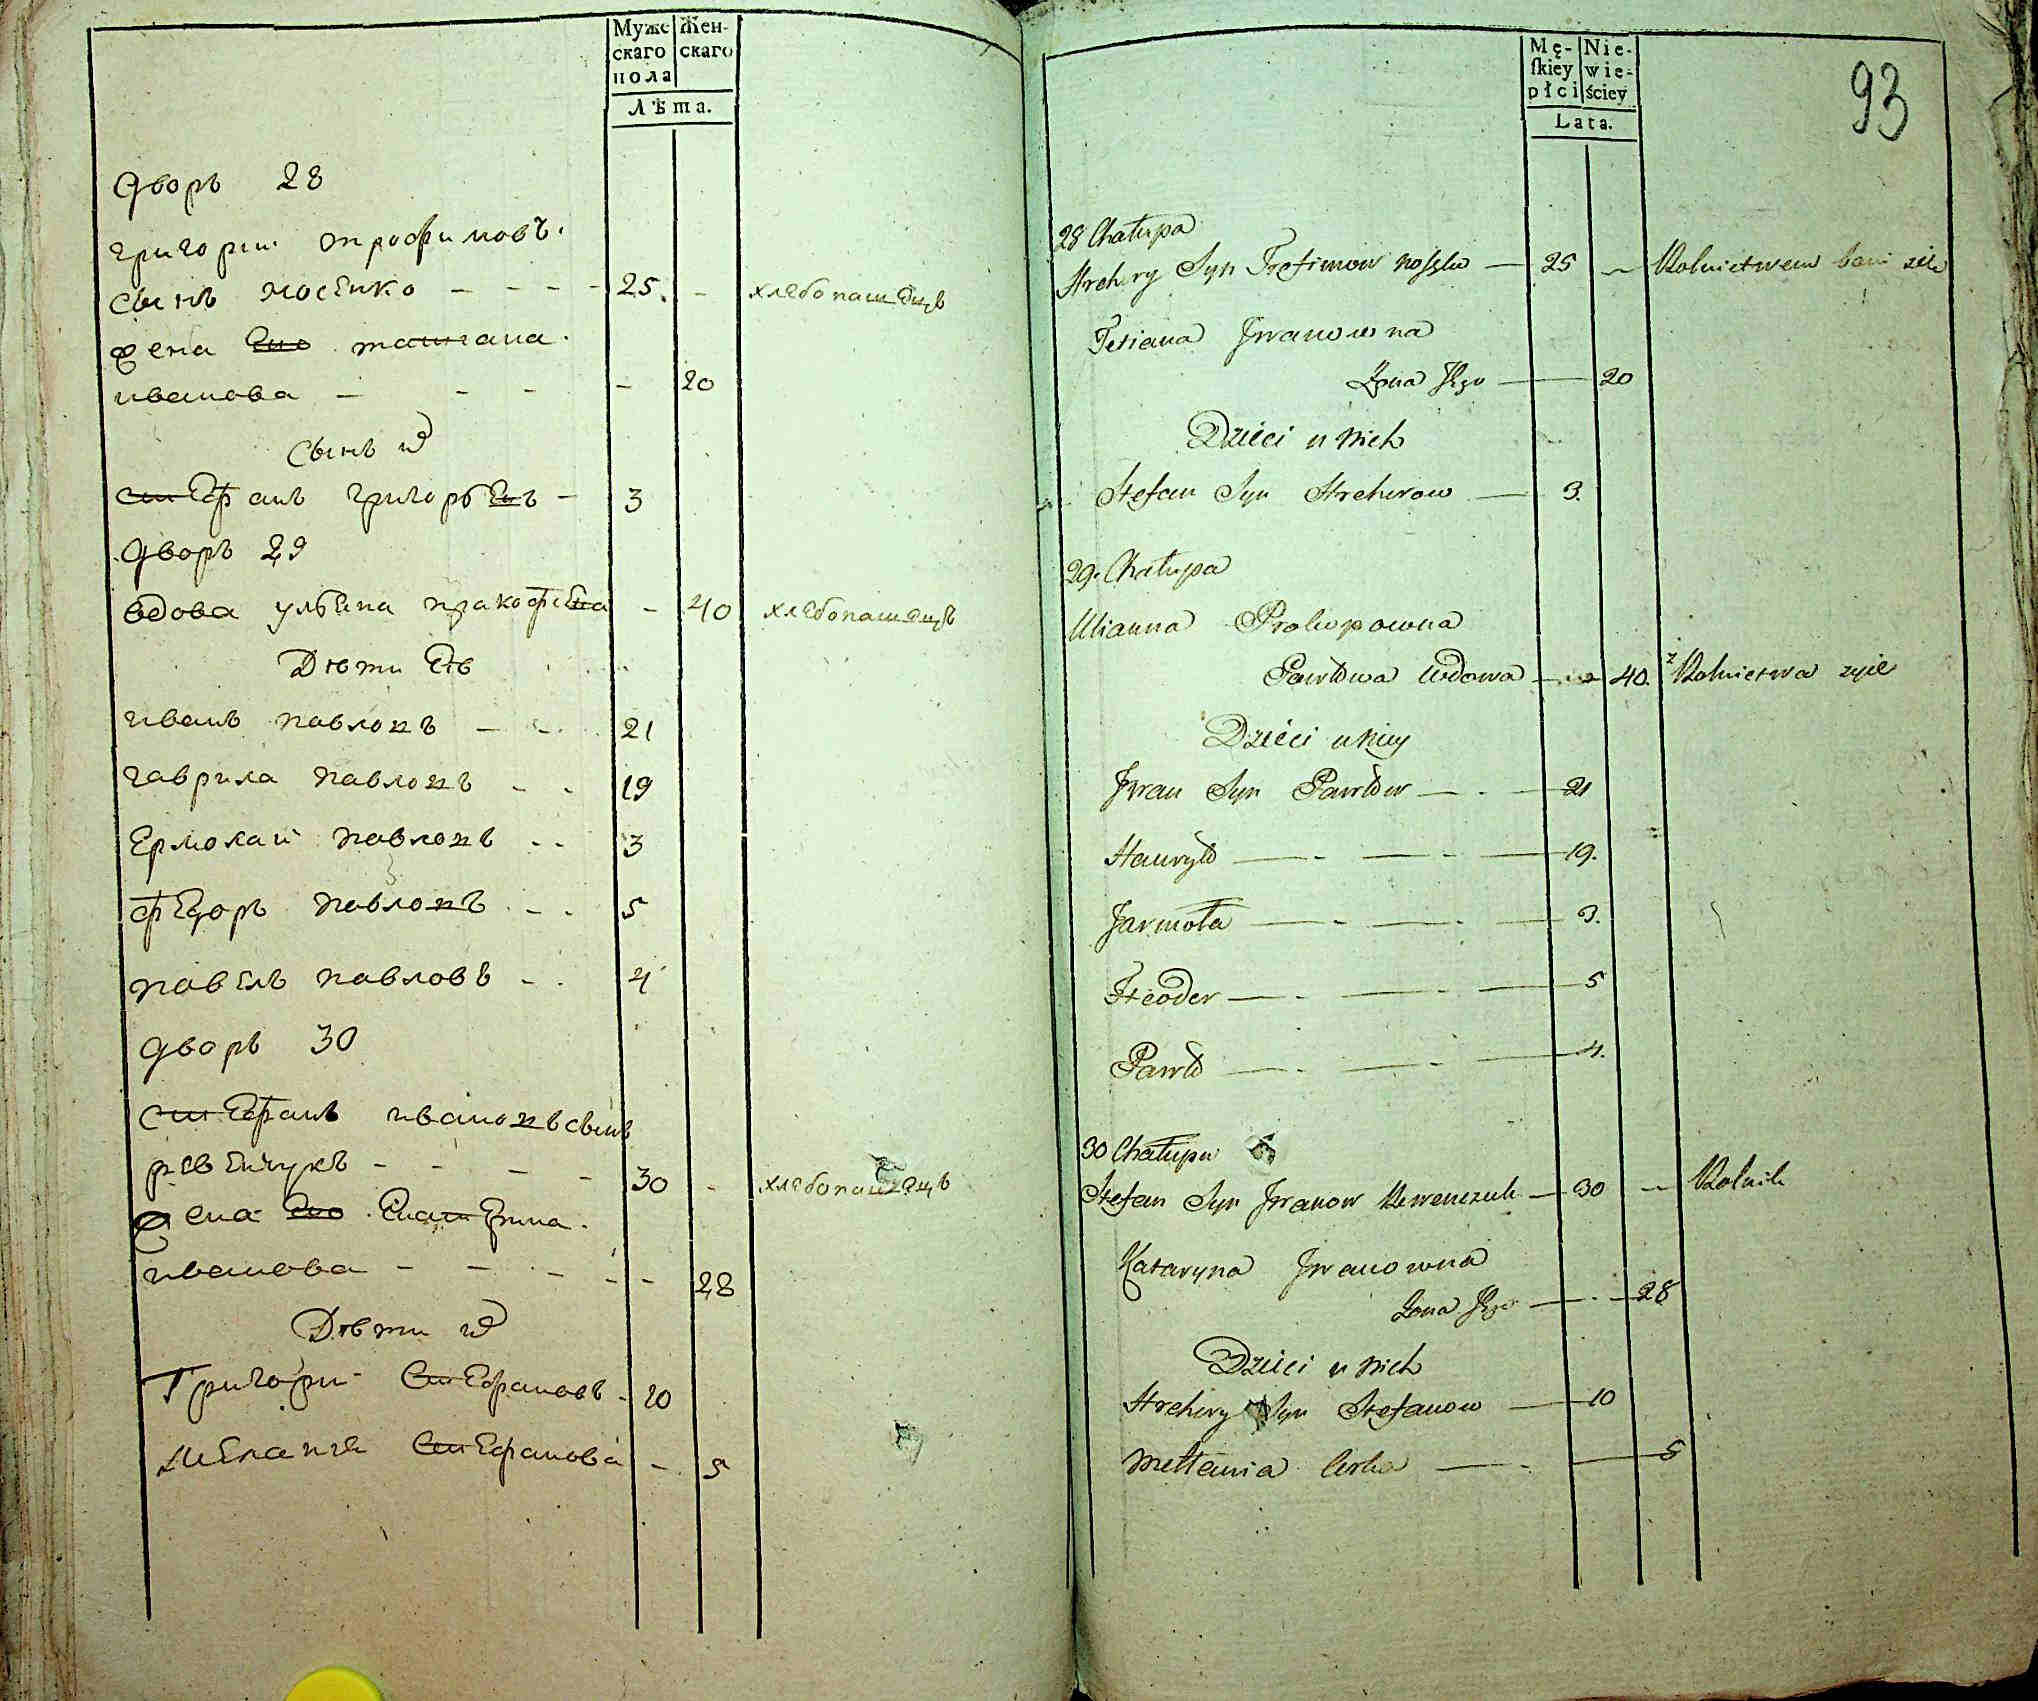 Мужс Жен-
скаго скаго
пола
Лѣта.
дворъ 28
григории трофимовъ
сынъ мосенко - - - - 25. - хлебопашецъ
жена его татиана
иванова - - - - 20
сынъ их
стефанъ григорьевъ - 3
дворъ 29
вдова ульена пракофева - 40 хлебопашецъ
Дѣти Еѣ
иванъ павловъ - - 21
гаврила павловъ - - 19
Ермолаи павловъ - - 3
федоръ павловъ - - 5
павелъ павловъ - - 4
дворъ 30
стефанъ ивановъ сынъ
ревенчукъ - - - - 30 - хлебопашецъ
жена его Екатерина
иванова - - - - - - 28
Дѣти их
Григори Стефановъ - 10
Мелания Стефанова - 5
93
Mę- Nie-
ſkiey wie-
płci ściey
Lata.
28 Chałupa
Hrehory Syn Trofimow — 25 - Rolnictwem bawi sie
Tetiana Jwanowna
Zona Jego — 20
Dzieci u nich
Stefan Syn Hrehorow — 3.
29. Chałupa
Ulianna Prokopowna
Pawłowa Wdowa — 40. z Rolnictwa żyie
Dzieci u niey
Jwan Syn Pawłow — . — 21
Hawryło — . — . — 19.
Jarmoła — . — . — 3.
Fteoder — . — . — 5
Pawło — . — . — 4.
30 Chałupa
Stefan Syn Jwanow Rewenczuk — 30 - Rolnik
Kataryna Jwanowna
Zona Jego — . — 28
Dzieci u nich
Hrehory Syn Stefanow — 10
Mełłania Corka — . — 5